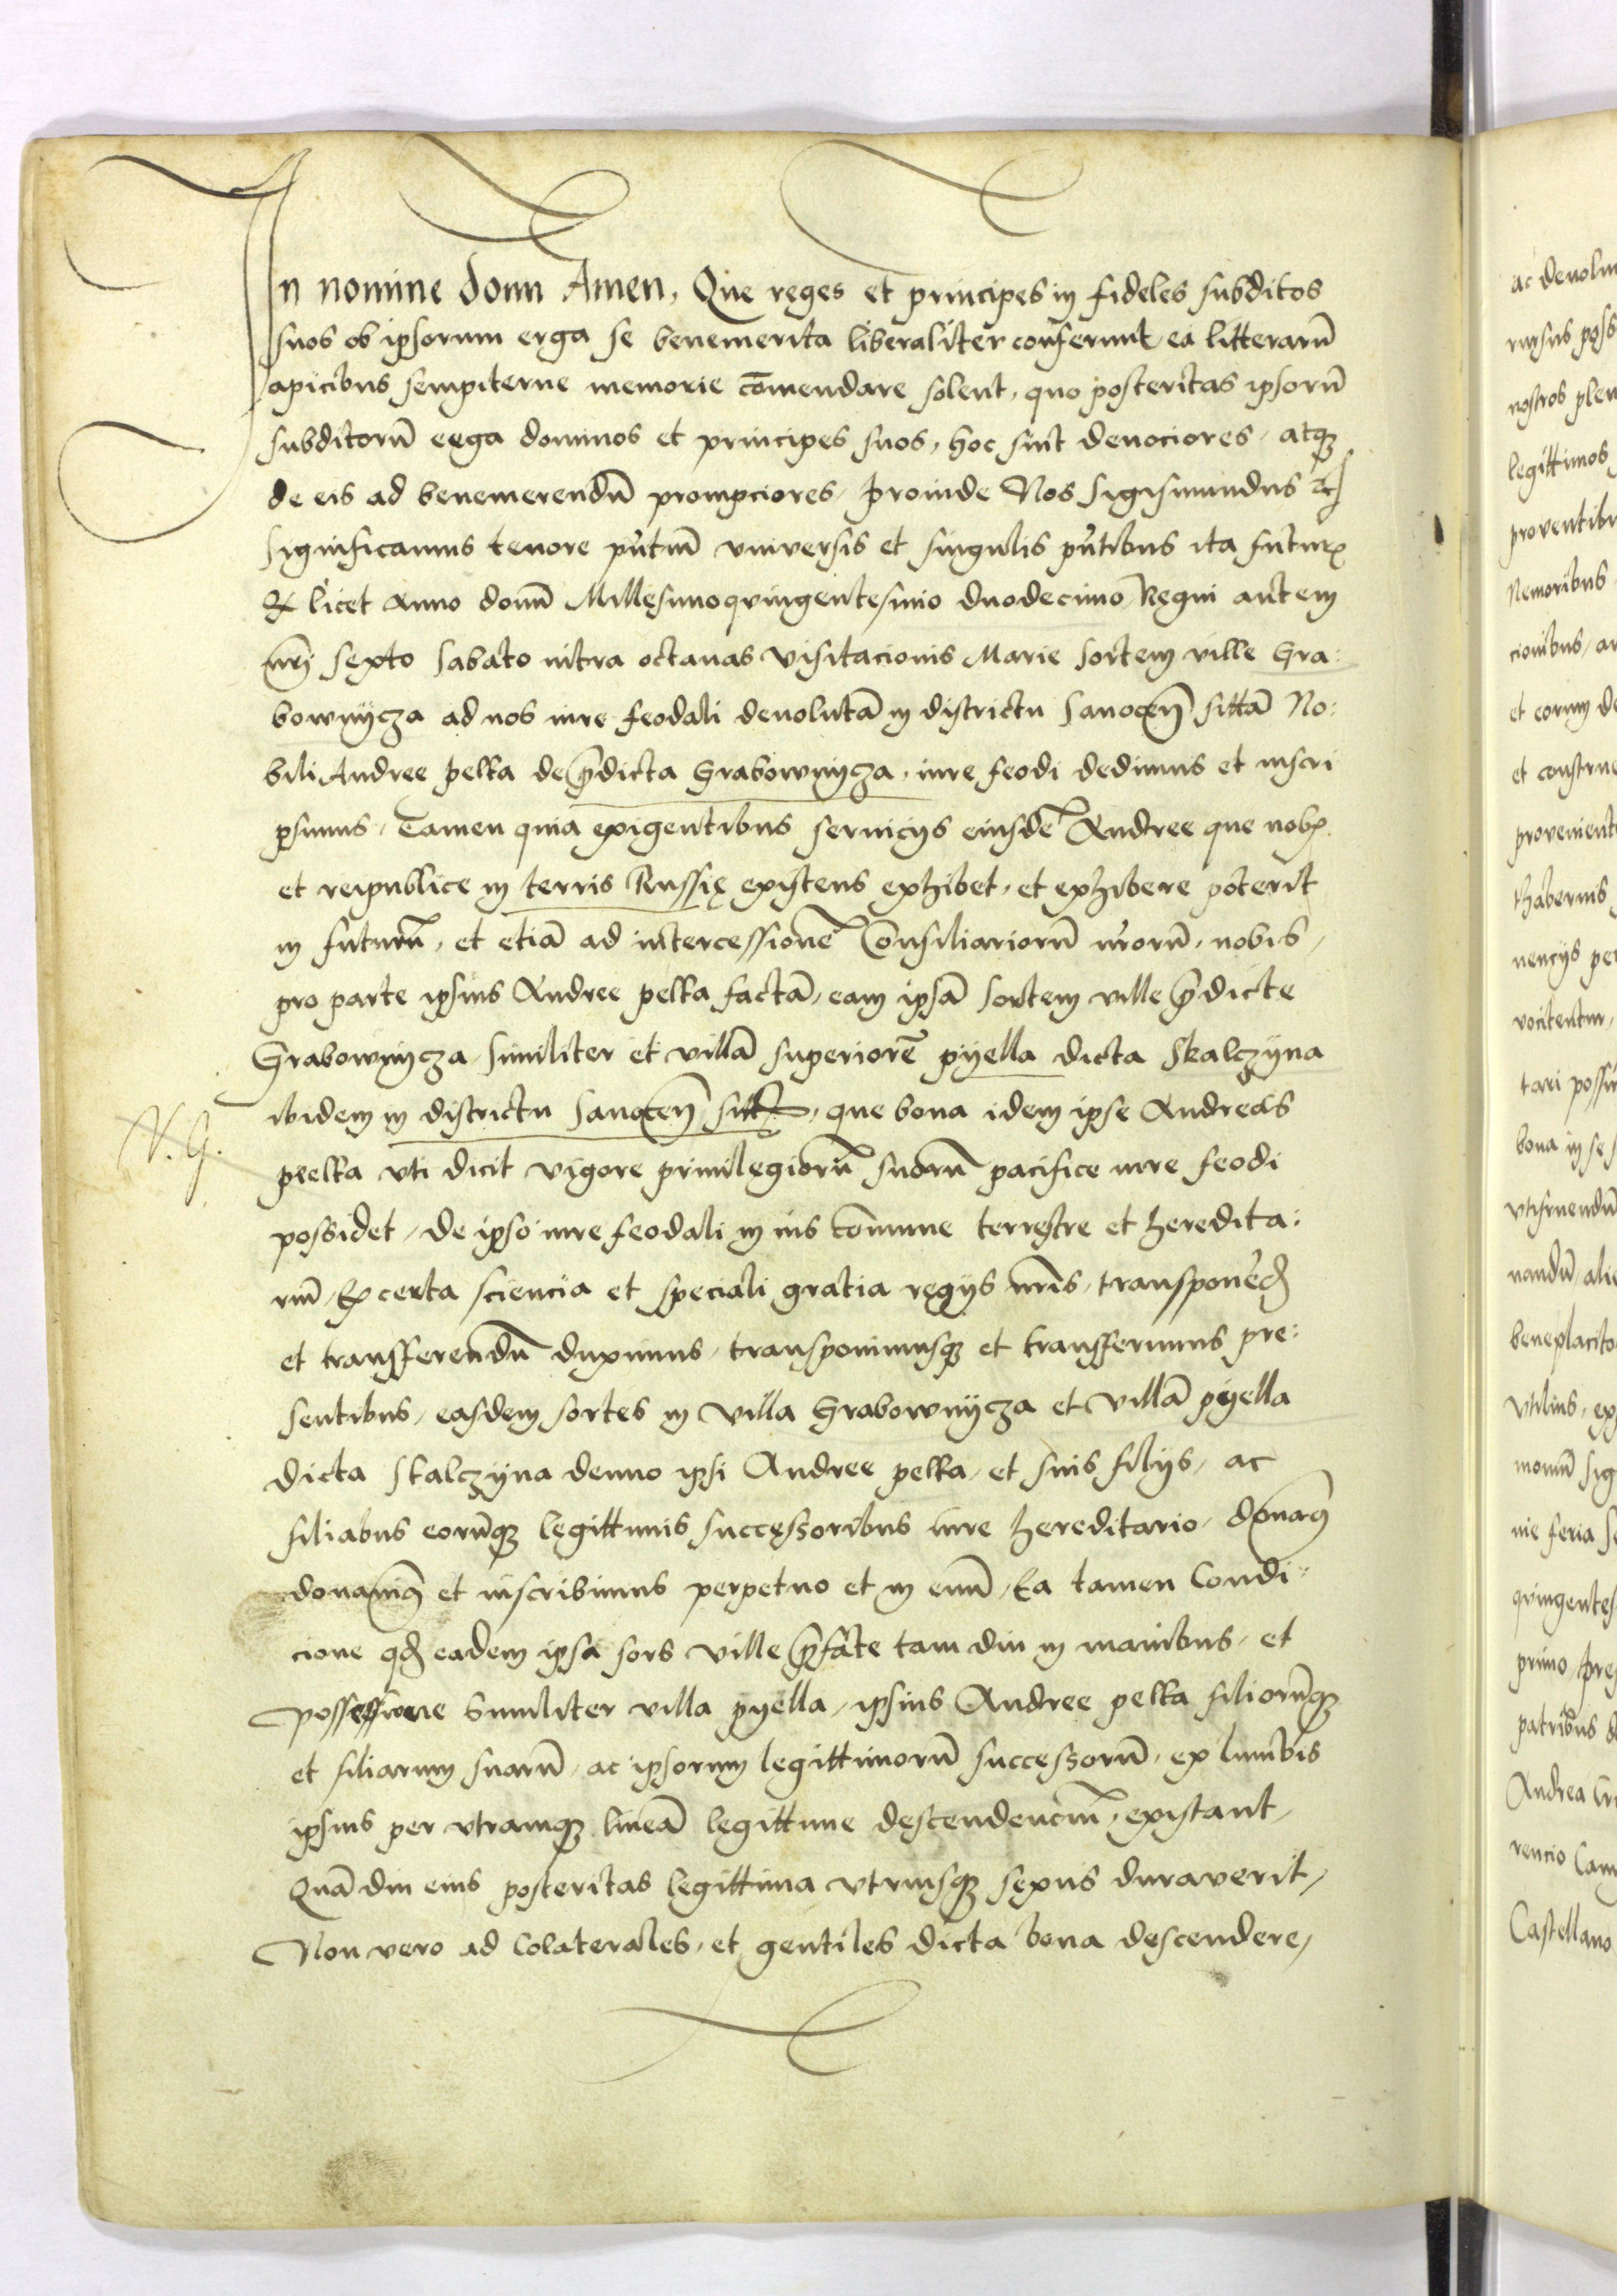 In nomine domi Amen, Que reges et principes in fideles subditos
suos ob ipsorum erga se benemerita liberaliter conferunt, ea litterarū
apicibus sempiterne memorie cōmendare solent, quo posteritas ipsorū
subditorū erga dominos et principes suos, hoc sint deuociores, atqȝ
de eis ad benemerendū prompciores, Proinde Nos Sigismundus etc
Significamus tenore pn̄tiū vniversis et singulis pn̄tibus ita futur
Ꝙ licet Anno domī Millesimoquingentesimo duodecimo Regni autem
nr̄i sexto Sabato intra octauas Visitacionis Marie Sortem ville Gra:
bownÿcza ad nos iure feodali deuolutā in districtu Sanocen̄ sittā No:
bili Andree Pelka de p̄dicta Grabownÿcza, iure feodi dedimus et inscri
psimus, Tamen quia exigentibus seruicijs eiusdē Andree que nob
et reipublice in terris Russię existens exhibet, et exhibere poterit
in futurū, et etiā ad intercessionē Consiliariorū nr̄orū, nobis,
pro parte ipsius Andree pelka factā, eam ipsā Sortem ville p̄dicte
Grabownÿcza, Similiter et villā superiorē pÿella dicta Skalczÿna
ibidem in districtu Sanocen̄, que bona idem ipse Andreas
N. G.
pelka vti dicit vigore priuilegiorū suorū pacifice iure feodi
possidet, de ipso iure feodali in ius cōmune terrestre et heredita:
riū, Ex certa sciencia et speciali gratia regijs nr̄is, transponēd
et transfferendū duximus, transponimusqȝ et transfferimus pre:
sentibus, easdem sortes in villa Grabownÿcza et villā pÿella
dicta Skalczÿna denuo ipsi Andree pelka, et suis filijs, ac
filiabus eorūqȝ legittimis successoribus iure hereditario,
donam̄ et inscribimus perpetuo et in euū, Ea tamen Condi:
cione qd eadem ipsa sors ville p̄fate tam diu in manibus, et
possessione Similiter villa pÿella, ipsius Andree pelka filiorūqȝ
et filiarum suarū, ac ipsorum legittimorū successorū, ex lumbis
ipsius per vtramqȝ lineā legittime descendenciū, existant,
Quā diu eius posteritas legittima vtriusqȝ sexus duraverit,
Non vero ad Colaterales, et gentiles dicta bona descendere,
ac deuolu
rursus poss
nostros plen
legittimos
proventibu
Nemoribus
cionibus, a
et eorum de
et constru
provenient
thabernis
nencijs per
vocitentur,
tari possi
bona in se s
vtifruendū
nandū, alie
beneplacito
vtilius, ex
moniū sig
nie feria S
quingentes
primo, Pre
patribus
Andrea Cri
rencio Cam
Castellano